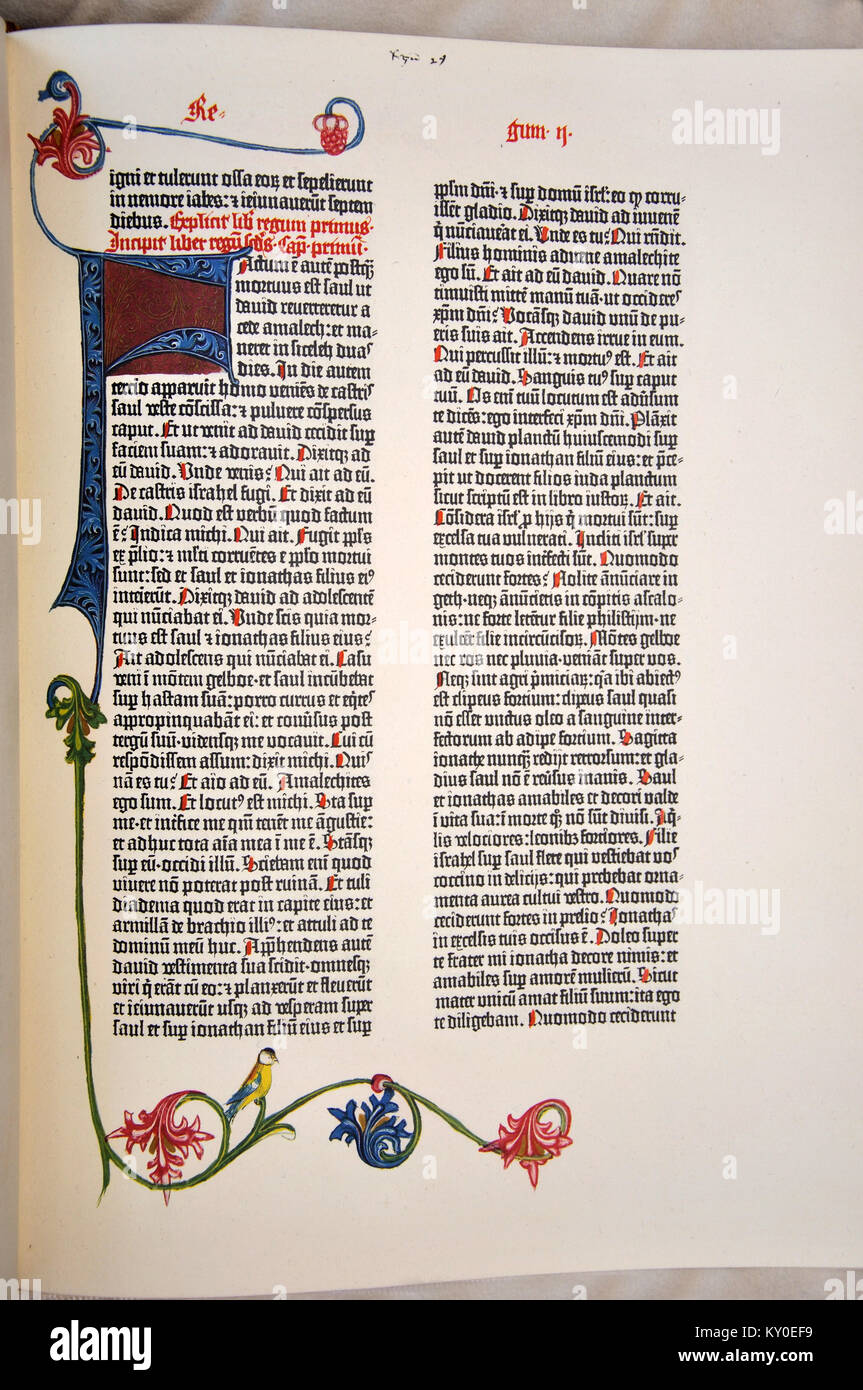 Re-
gum · ij ·
igni et tulerunt ossa eoꝝ et sepelierunt
in nemore iabes: ⁊ ieiunauerunt septem
diebus. Explicit lib̄ regum primus.
Incipit liber regū scd̄s. Cap̄. primū.
Factum ē autē postqꝫ
mortuus est saul ut
dauid reuerteretur a
cede amalech: et ma-
neret in siceleh duaꝰ
dies. In die autem
tercio apparuit homo veniēs de castriꝰ
saul veste cōscissa: ⁊ puluere cōspersus
caput. Et ut venit ad dauid cecidit sup̄
faciem suam: ⁊ adorauit. Dixitqꝫ ad
eū dauid. Unde venis? Qui ait ad eū.
De castris israhel fugi. Et dixit ad eū
dauid. Quod est verbū quod factum
ē? Indica michi. Qui ait. Fugit pp̄ls
ex p̄lio: ⁊ ml̄ti corruētes e pp̄lo mortui
sunt: sed et saul et ionathas filius eiꝰ
intērierūt. Dixitqꝫ dauid ad adolescentē
qui nūciabat ei. Unde scis quia mor-
tuus est saul ⁊ ionathas filius eius?
Ait adolescens qui nūciabat ei. Casu
veni ī mōtem gelboe: et saul incūbebat
sup̄ hastam suā: porro currus et eq̄tes
appropinquabāt ei: et conūsus post
tergū suū · vidensqꝫ me vocauit. Cui cū
respōdissem assum: dixit michi. Qui-
nā es tu? Et aio ad eū. Amalechites
ego sum. Et locutꝰ est michi. Sta sup̄
me · et int̄fice me qm̄ tenēt me āgustie:
et adhuc tota aīa mea ī me ē. Stāsqꝫ
sup̄ eū · occidi illū. Sciebam enī quod
viuere nō poterat post ruinā. Et tuli
diadema quod erat in capite eius: et
armillā de brachio illiꝰ: et attuli ad te
dominū meū huc. App̄hendens autē
dauid vestimenta sua scidit · omnesqꝫ
viri q̄ erāt cū eo: ⁊ planxerūt et fleuerūt
et ieiunauerūt usqꝫ ad vesperam super
saul et sup̄ ionathan filiū eius et sup̄
pp̄lm dn̄i · ⁊ sup̄ domū isrl̄: eo qꝫ corru-
issēt gladio. Dixitqꝫ dauid ad iuuenē
q̄ nūciauerat ei. Unde es tu? Qui rn̄dit.
Filius hominis aduene amalechite
ego sū. Et ait ad eū dauid. Quare nō
timuisti mittē manū tuā · ut occideresꝰ
xp̄m dn̄i? Vocāsqꝫ dauid vnū de pu-
eris suis ait. Accedens irrue in eum.
Qui percussit illū: ⁊ mortuꝰ est. Et ait
ad eū dauid. Sanguis tuꝰ sup̄ caput
tuū. Os enī tuū locutum est aduīsum
te dicēs: ego interfeci xp̄m dn̄i. Plāxit
autē dauid planctū huiuscemodi sup̄
saul et sup̄ ionathan filiū eius: et p̄ce-
pit ut docerent filios iuda planctum
sicut scriptū est in libro iustoꝝ. Et ait.
Cōsidera isrl̄ p̄ hijs q̄ mortui sūt: sup̄
excelsa tua vulnerati. Incliti isrl̄ supeꝛ
montes tuos int̄fecti sūt. Quomodo
ceciderunt fortes? Nolite ānūciare in
geth · neqꝫ ānūcietis in cōpitis ascalo-
nis: ne forte letētur filie philistijm · ne
exultēt filie incircūcisoꝝ. Mōtes gelboe
nec ros nec pluuia · veniāt super vos.
Neqꝫ sint agri p̄miciaꝝ: q̄a ibi abiectꝰ
est clipeus fortium: clipeus saul quasi
nō esset vnctus oleo a sanguine inter-
fectorum ab adipe fortium. Sagitta
ionathe nunqꝫ redijt retrorsum: et gla-
dius saul nō ē reūsus inanis. Saul
et ionathas amabiles et decori valde
ī vita sua: ī morte qꝫ nō sūt diuisi. Aq̄-
lis velociores: leonibꝫ forciores. Filie
israhel sup̄ saul flete qui vestiebat voꝰ
coccino in delicijs: qui prebebat orna-
menta aurea cultui vestro. Quomodo
ceciderunt fortes in prelio? Ionathaꝰ
in excelsis tuis occisus ē. Doleo super
te frater mi ionatha decore nimis: et
amabiles sup̄ amorē mulierū. Sicut
mater vnicū amat filiū suum: ita ego
te diligebam. Quomodo ceciderunt
alamy
Image ID: KY0EF9
www.alamy.com